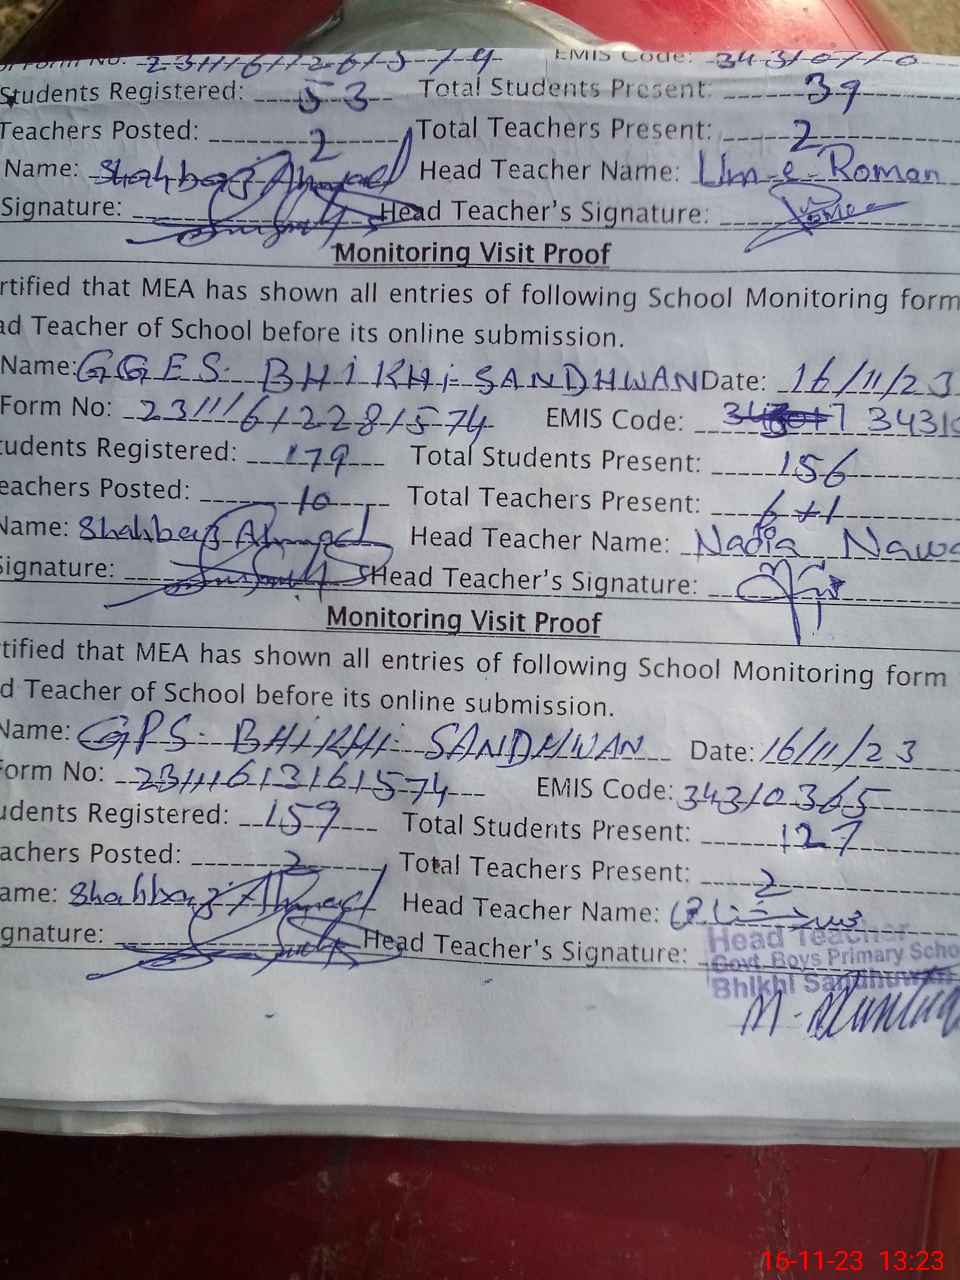 Form No: 23111612615 74 EMIS Code: 34310710
Students Registered: 53 Total Students Present: 39
Teachers Posted: 2 Total Teachers Present: 2
Name: Shahbaz Ahmad Head Teacher Name: Um-e-Roman
Signature: Head Teacher's Signature:
Monitoring Visit Proof
rtified that MEA has shown all entries of following School Monitoring form
ad Teacher of School before its online submission.
Name: GGES. BHIKHI-SANDHWAN Date: 16/11/23
Form No: 23111612281574 EMIS Code: 3431
tudents Registered: 179 Total Students Present: 156
eachers Posted: 10 Total Teachers Present: 6+1
Name: Shahbaz Ahmad Head Teacher Name: Nadia Nawa
Signature: Head Teacher's Signature:
Monitoring Visit Proof
tified that MEA has shown all entries of following School Monitoring form
d Teacher of School before its online submission.
Name: GPS. BHIKHI SANDHWAN Date: 16/11/23
Form No: 23111613161574 EMIS Code: 34310365
udents Registered: 159 Total Students Present: 127
achers Posted: 2 Total Teachers Present: 2
ame: Shahbaz Ahmad Head Teacher Name:
gnature: Head Teacher's Signature:
Head Teacher
Govt. Boys Primary Scho
Bhikhi Sandhuwan
16-11-23 13:23